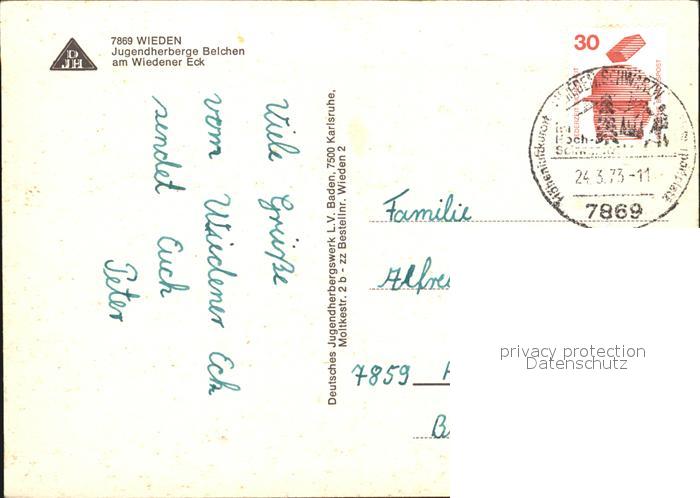 DJH
7869 WIEDEN
Jugendherberge Belchen
am Wiedener Eck
Viele Grüße
vom Wiedener Eck
sendet Euch
Peter
Deutsches Jugendherbergswerk L.V. Baden, 7500 Karlsruhe,
Moltkestr. 2 b - zz Bestellnr. Wieden 2
30
Höhenluftkurort
im
Hoch-
24.3.73-11
7869
Familie
Alfre
7859
B
privacy protection
Datenschutz